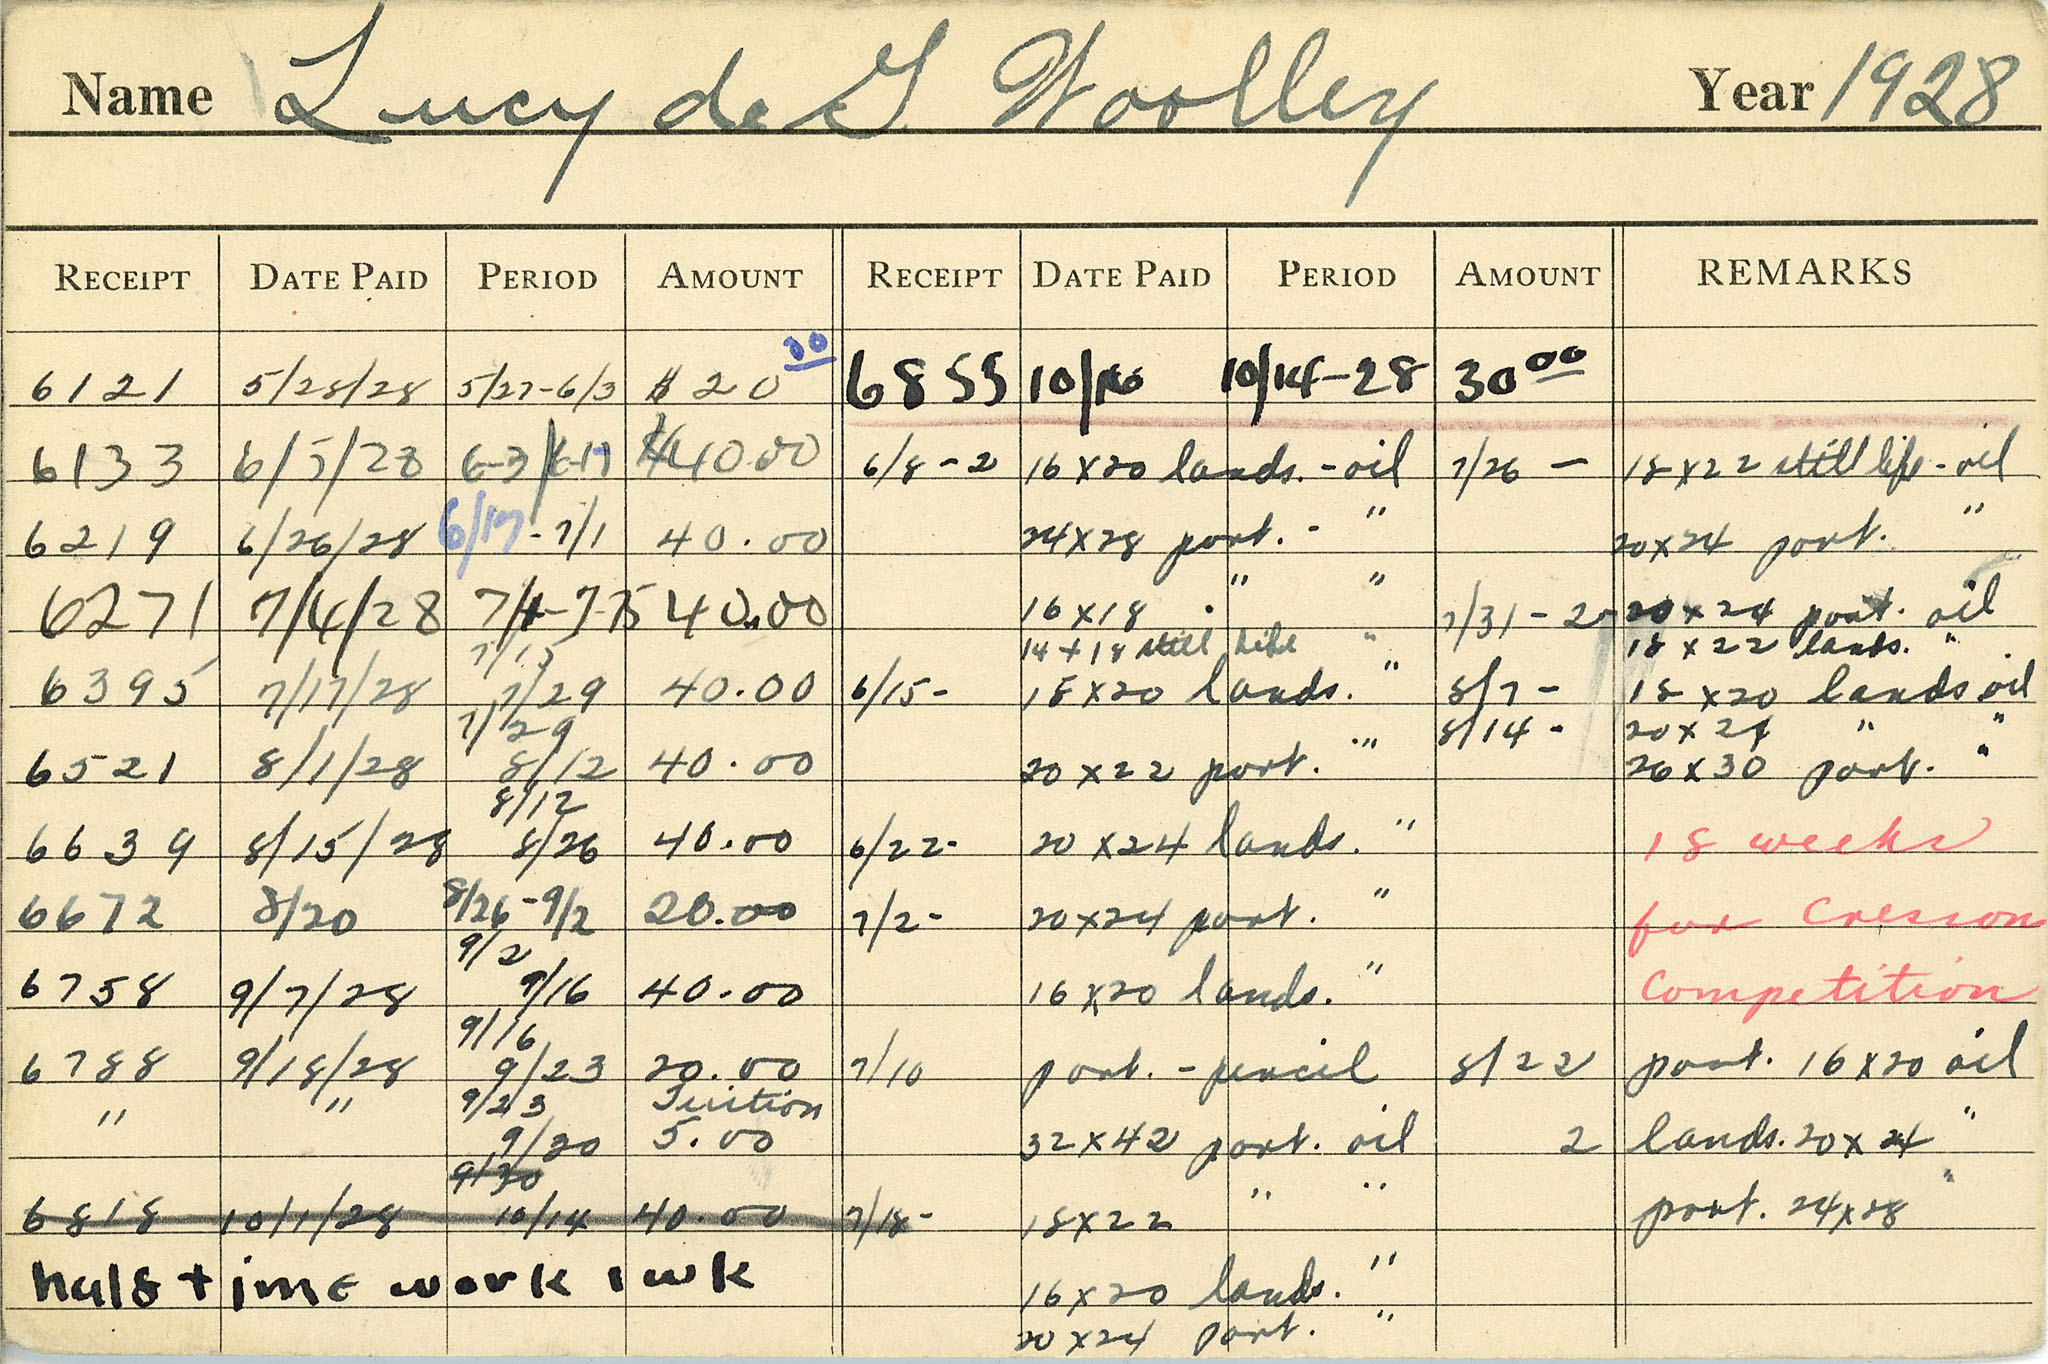 Name Lucy de G Woolley Year 1928
RECEIPT DATE PAID PERIOD AMOUNT RECEIPT DATE PAID PERIOD AMOUNT REMARKS
6121 5/28/28 5/27-6/3 $20 00 6855 10/16 10/14-28 30 00
6133 6/5/28 6-3/6-17 $40.00 6/8-2 16x20 lands.-oil 7/26 - 18x22 still life-oil
6219 6/26/28 6/17-7/1 40.00 24x28 port. - " 20x24 port. "
6271 7/4/28 7/1-7-15 40.00 16x18 " " 7/31-2- 20x24 port. oil
7/15 14+18 still life " 18x22 lands. "
6395 7/17/28 7/29 40.00 6/15- 18x20 lands. " 8/7- 18x20 lands oil
7/29 8/14- 20x24 " "
6521 8/1/28 8/12 40.00 20x22 port. " 26x30 port. "
8/12
6639 8/15/28 8/26 40.00 6/22- 20x24 lands. " 18 weeks
6672 8/20 8/26-9/2 20.00 7/2- 20x24 port. " for Cresson
9/2
6758 9/7/28 9/16 40.00 16x20 lands. " Competition
9/16
6788 9/18/28 9/23 20.00 7/10 port. - pencil 8/22 port. 16x20 oil
" " 9/23 Tuition
9/30 5.00 32x42 port. oil 2 lands. 20x24 "
9/30
6818 10/1/28 10/14 40.00 7/18- 18x22 " " port. 24x28 "
half time work 1 wk 16x20 lands. "
20x24 port. "